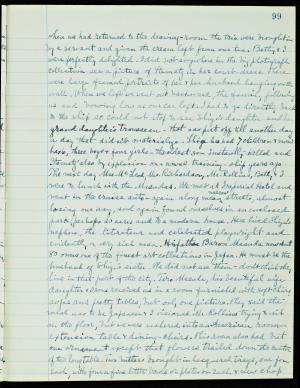 99
when we had returned to the drawing-room the tea was brought in
by a servant and given the cream left from our tea. Betty & I
were perfectly delighted. I did not see in the big photograph
collection a picture of in her court dress. There
were large framed portraits of her & her husband hanging on the
wall. When we left we went out backward, the family following
us and bowing low as our car left. I had to go directly back
to the ship so could not stay to see Shiji's daughter and her
granddaughter's trousseau - that was put off till another day
a day that did not materialize. Shiji has had 7 children & now
has , three boys & four girls, the oldest son, killed and
also by explosion on a training ship years ago
The next day Mrs. McLeod, Mrs. Richardson, Mr. Rollins, Betty & I
were to lunch with the Masudas. We met at Imperial Hotel and
went in the cruiser auto again along many narrow streets, almost
losing our way, and again found ourselves in an enclosed
park, perhaps 20 acres and to a modern house. Here lived Shiji's
nephew, the literature and celebrated playwright and
evidently a very rich man. His father Baron Masuda now about
80 owns one of the finest art collections in Japan. He must be the
husband of Shiji's sister. We did not see them & don't think they
live in that part of the city. Mrs. Masuda, his beautiful wife
daughter & sons received us in a room furnished with soft chairs
sofas and pretty tables, but only one picture. They said the
meal was to be Japanese & I visioned Mr. Rollins trying to sit
on the floor, but we were ushered into an American room
extension table & dining-chairs. This room also had but
one ornament except that flowers trailed down the center
of the long table. Two waiters brought in lacquered trays, one for
each, with four or five little bowls or plates on each, & new chop